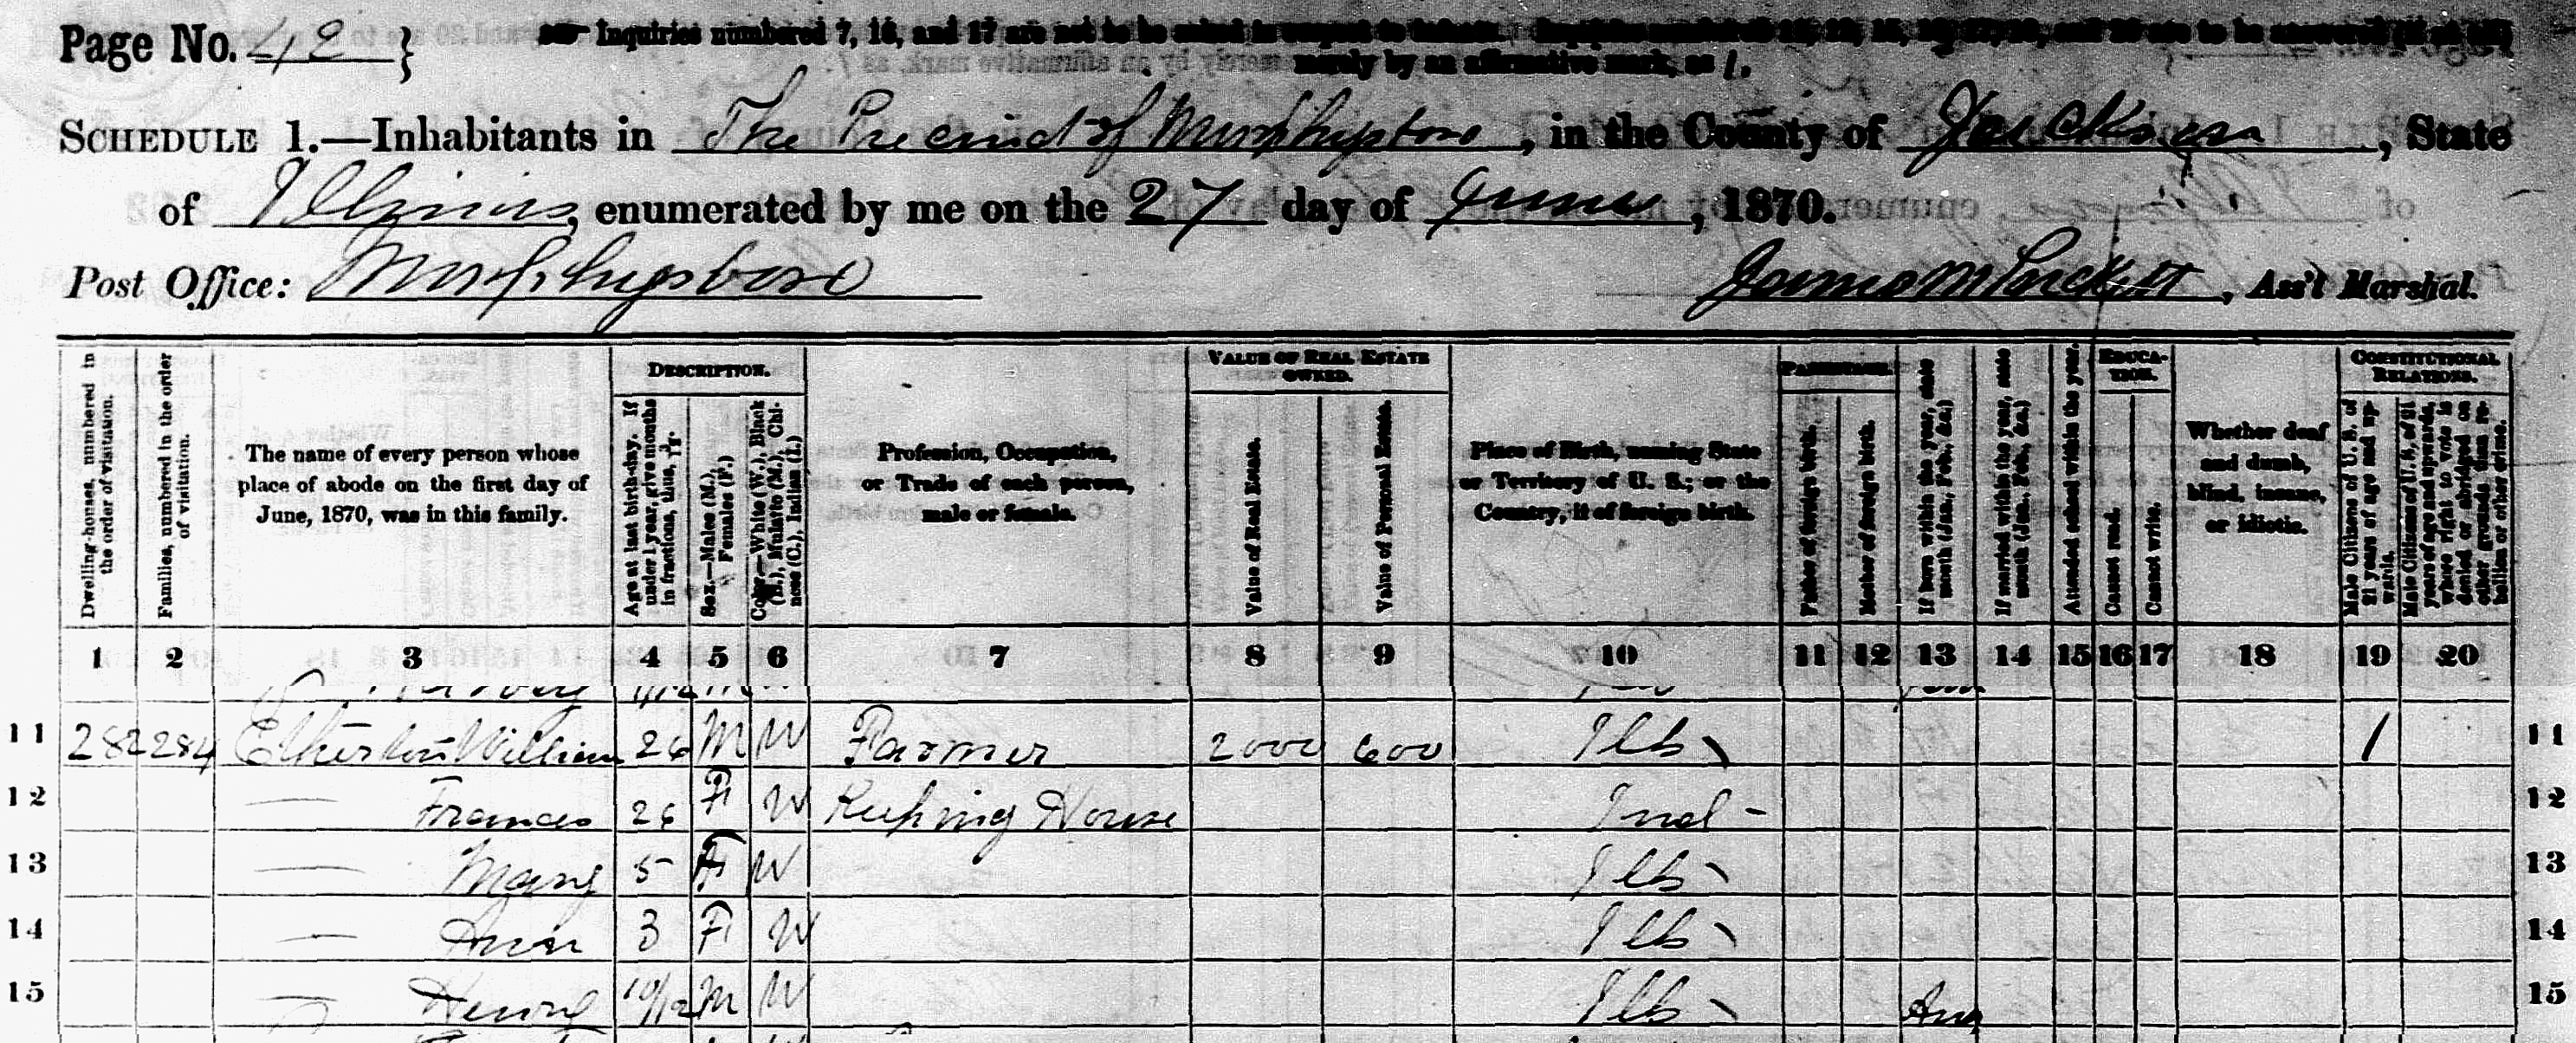 Page No. 42 }
Inquiries numbered 7, 16, and 17 are not to be asked in respect to infants.
merely by an affirmative mark, as /.
SCHEDULE 1.—Inhabitants in The Precinct of Murphysboro, in the County of Jackson, State
of Illinois, enumerated by me on the 27 day of June, 1870.
Post Office: Murphysboro
James M, Ass't Marshal.
DESCRIPTION.
VALUE OF REAL ESTATE OWNED.
PARENTAGE.
EDUCATION.
CONSTITUTIONAL RELATIONS.
Dwelling-houses, numbered in the order of visitation.
Families, numbered in the order of visitation.
The name of every person whose place of abode on the first day of June, 1870, was in this family.
Age at last birth-day. If under 1 year, give months in fractions, thus, 3/12.
Sex.—Males (M.), Females (F.)
Color.—White (W.), Black (B.), Mulatto (M.), Chinese (C.), Indian (I.)
Profession, Occupation, or Trade of each person, male or female.
Value of Real Estate.
Value of Personal Estate.
Place of Birth, naming State or Territory of U. S.; or the Country, if of foreign birth.
Father of foreign birth.
Mother of foreign birth.
If born within the year, state month (Jan., Feb., &c.)
If married within the year, state month (Jan., Feb., &c.)
Attended school within the year.
Cannot read.
Cannot write.
Whether deaf and dumb, blind, insane, or idiotic.
Male Citizens of U. S. of 21 years of age and upwards.
Male Citizens of U. S. of 21 years of age and upwards, whose right to vote is denied or abridged on other grounds than rebellion or other crime.
1 2 3 4 5 6 7 8 9 10 11 12 13 14 15 16 17 18 19 20
11 282 284 Etherton William 26 M W Farmer 2000 600 Ills 1 11
12 — Frances 26 F W Keeping House Ind - 12
13 — Mary 5 F W Ills 13
14 — Ann 3 F W Ills 14
15 — Henry 10/12 M W Ills Aug 15